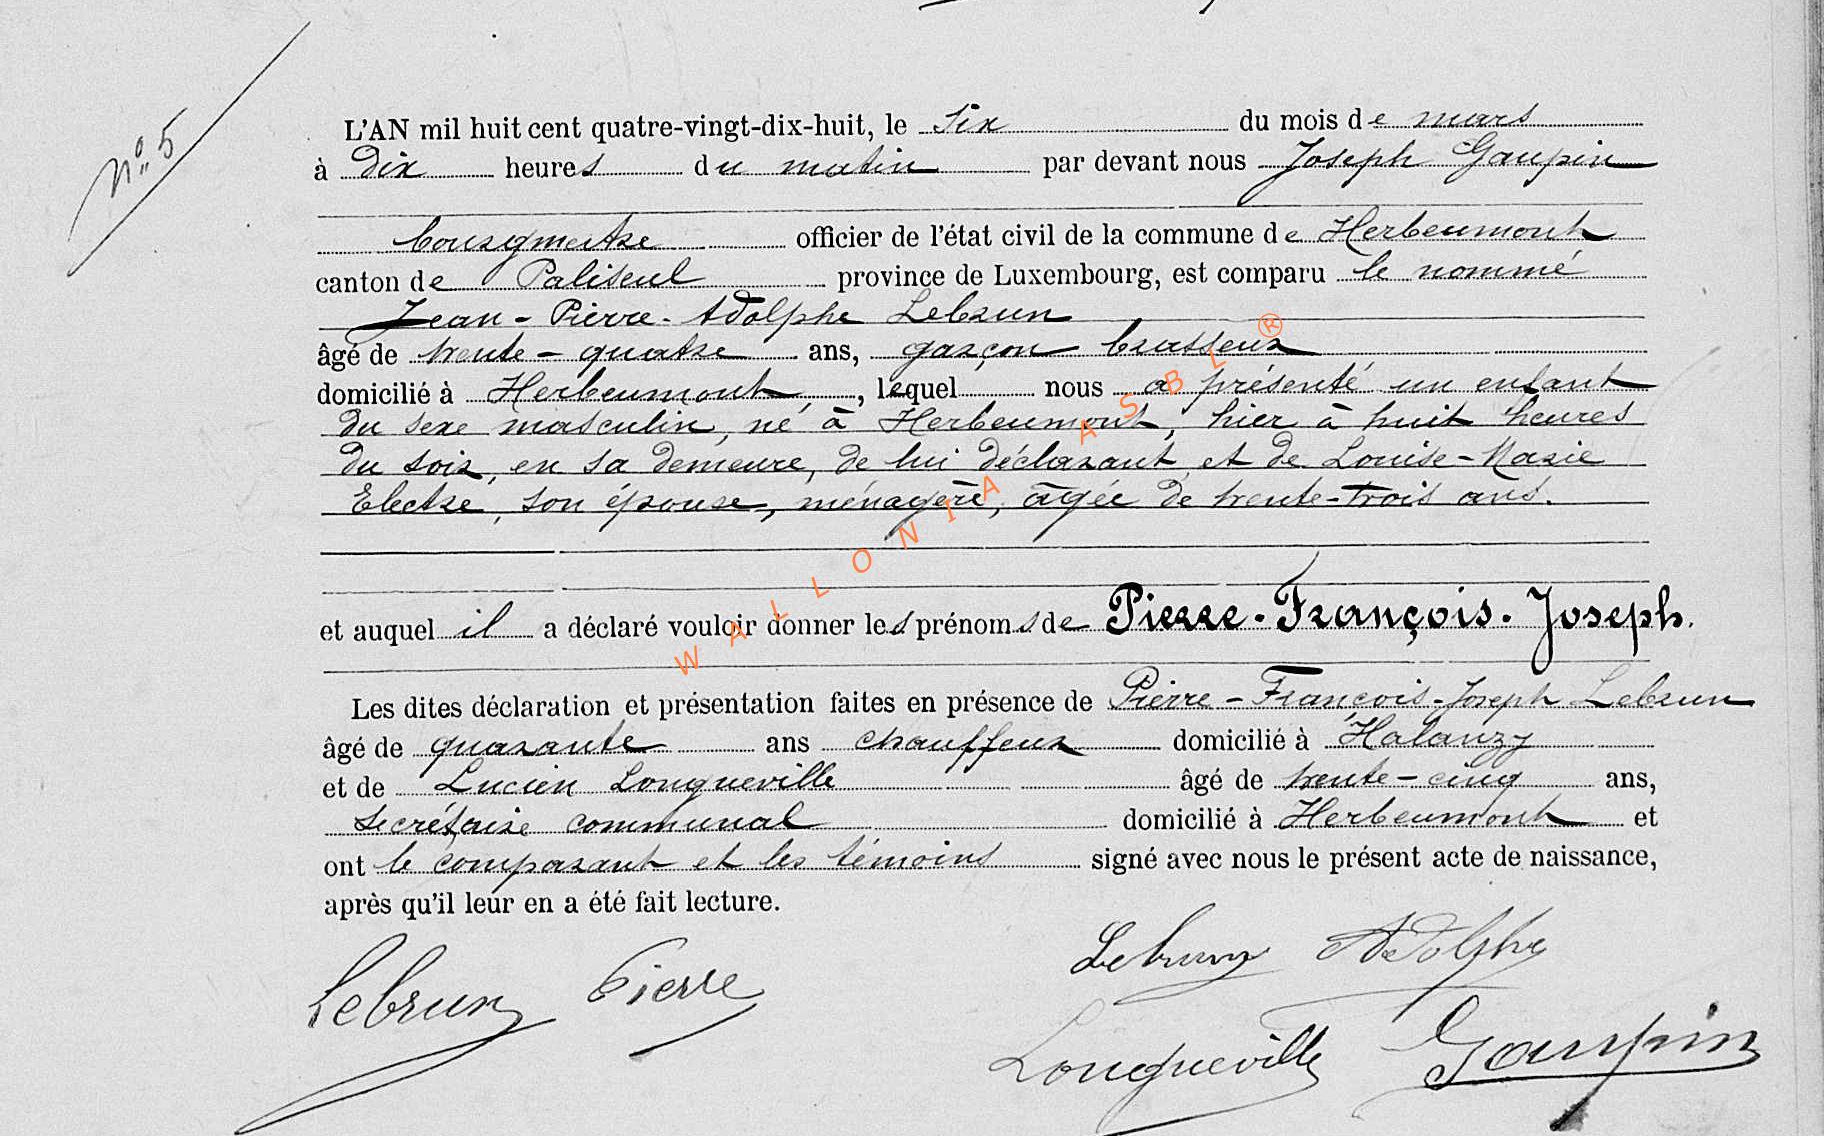 N° 5
L'AN mil huit cent quatre-vingt-dix-huit, le six du mois de mars
à dix heures du matin par devant nous Joseph Gaupin
bourgmestre officier de l'état civil de la commune de Herbeumont
canton de Paliseul province de Luxembourg, est comparu le nommé
Jean-Pierre-Adolphe Lebrun
âgé de trente-quatre ans, garçon brasseur
domicilié à Herbeumont, lequel nous a présenté un enfant
du sexe masculin, né à Herbeumont, hier à huit heures
du soir, en sa demeure, de lui déclarant et de Louise-Marie
Electre, son épouse, ménagère, âgée de trente-trois ans.
et auquel il a déclaré vouloir donner les prénoms de Pierre-François-Joseph.
Les dites déclaration et présentation faites en présence de Pierre-François-Joseph Lebrun
âgé de quarante ans chauffeur domicilié à Halanzy
et de Lucien Longueville âgé de trente-cinq ans,
secrétaire communal domicilié à Herbeumont et
ont le comparant et les témoins signé avec nous le présent acte de naissance,
après qu'il leur en a été fait lecture.
Lebrun Adolphe
Lebrun Pierre
Longueville Gaupin
WALLONIA ASBL ®